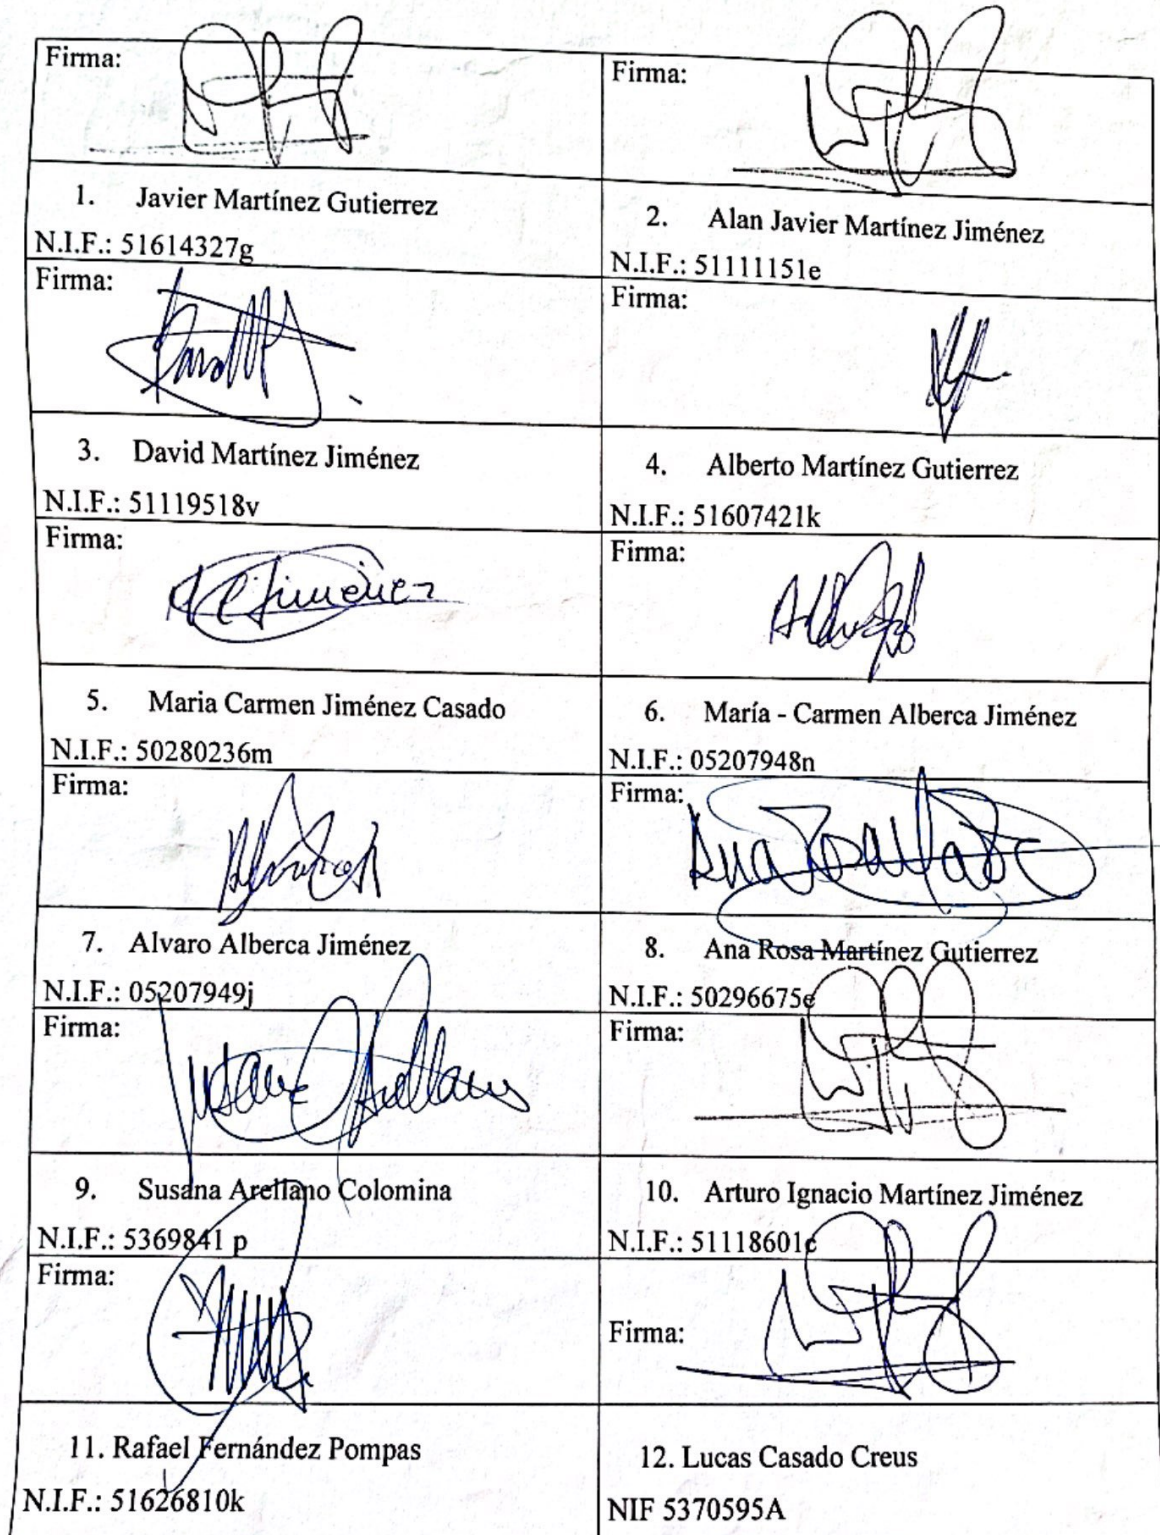 Firma:
Firma:
1. Javier Martínez Gutierrez
N.I.F.: 51614327g
2. Alan Javier Martínez Jiménez
N.I.F.: 51111151e
Firma:
Firma:
3. David Martínez Jiménez
N.I.F.: 51119518v
4. Alberto Martínez Gutierrez
N.I.F.: 51607421k
Firma:
Jiménez
Firma:
5. Maria Carmen Jiménez Casado
N.I.F.: 50280236m
6. María - Carmen Alberca Jiménez
N.I.F.: 05207948n
Firma:
Firma:
Ana Rosa
7. Alvaro Alberca Jiménez
N.I.F.: 05207949j
8. Ana Rosa Martínez Gutierrez
N.I.F.: 50296675e
Firma:
Susana Arellano
Firma:
9. Susana Arellano Colomina
N.I.F.: 5369841 p
10. Arturo Ignacio Martínez Jiménez
N.I.F.: 51118601c
Firma:
Firma:
11. Rafael Fernández Pompas
N.I.F.: 51626810k
12. Lucas Casado Creus
NIF 5370595A